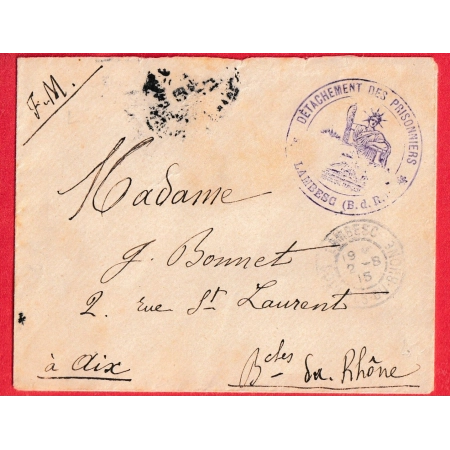 F.M.
DÉTACHEMENT DES PRISONNIERS
LAMBESC (B.d.R.)
Madame
J. Bonnet
2. rue St Laurent
à Aix
Bches du Rhône
LAMBESC
9
2-8
15